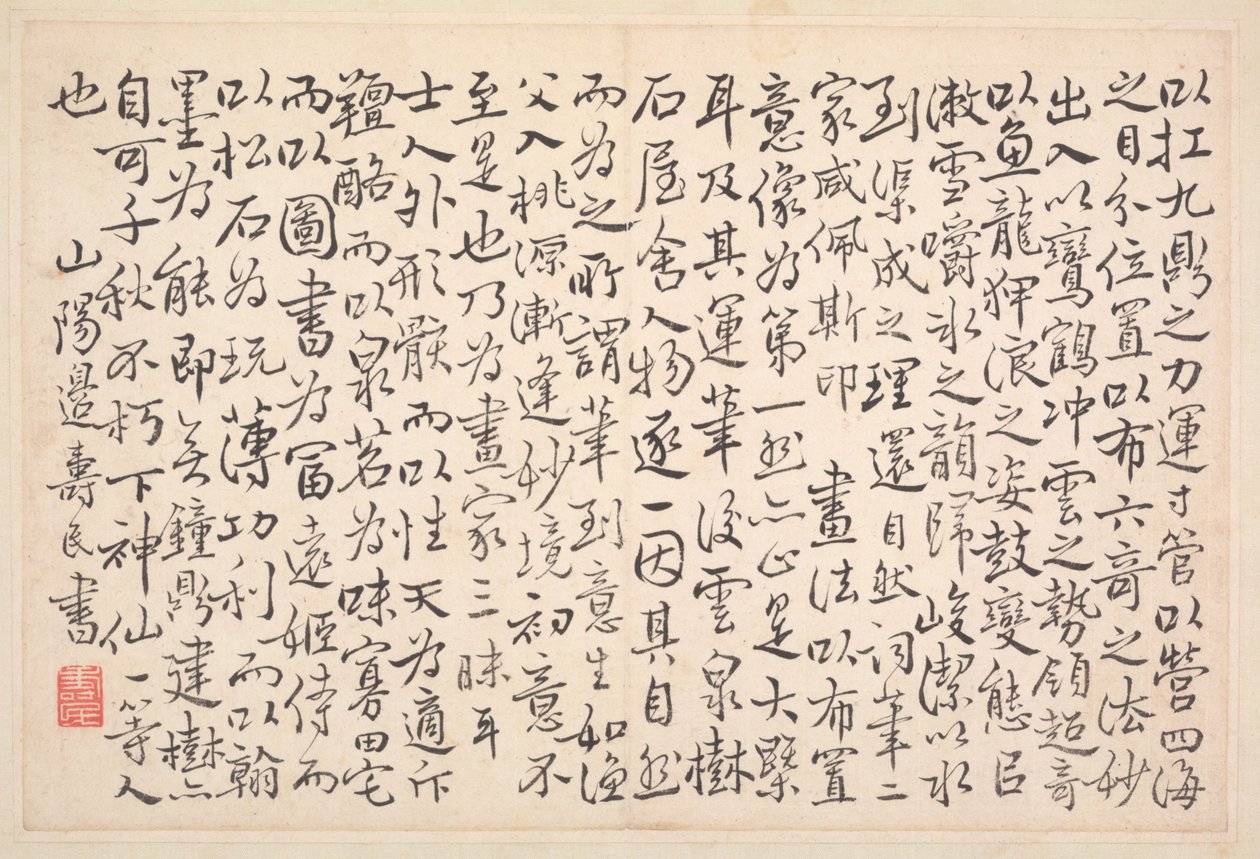 以扛九鼎之力運寸管以營四海
之目分位置以布六奇之法妙
出入以鸞鶴冲雲之勢領超奇
以魚龍狎浪之姿鼓變態已
漱雪嚼冰之韻歸峻潔以水
到渠成之理還自然詞筆二
家咸佩斯印 畫法以布置
意像為第一然亦止是大槩
耳及其運筆後雲泉樹
石屋舍人物逐一因其自然
而為之所謂筆到意生如漁
父入桃源漸逢妙境初意不
至是也乃為畫家三昧耳
士人外形骸而以性天為適斥
羶酪而以泉茗為味寡田宅
而以圖書為富遠姬侍而
以松石為玩薄功利而以翰
墨為能即無鐘鼎建樹亦
自可千秋不朽下神仙一等人
也
山陽邊壽民書